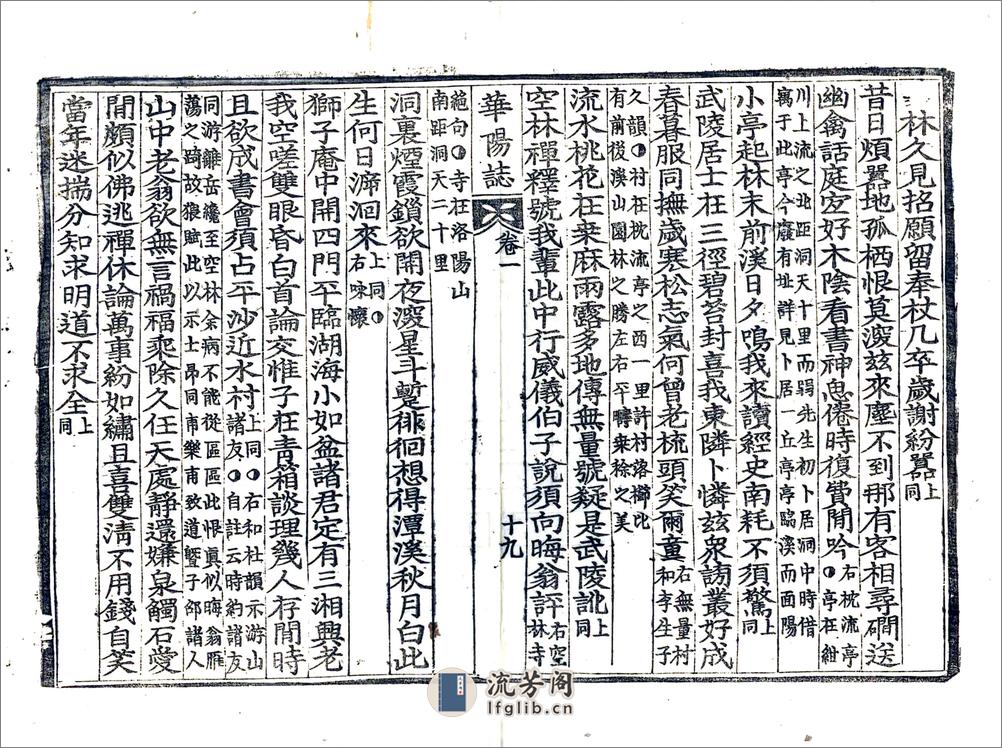 林久見招願留奉杖几卒歲謝紛囂上同
昔日煩囂地孤栖恨莫深玆來塵不到那有客相尋磵送
幽禽話庭宜好木陰看書神思倦時復費閒吟右枕流亭◑亭在紺
川上流之北距洞天十里而弱先生初卜居洞中時借
寓于此亭今廢有址詳見卜居一丘亭亭臨溪而面陽
小亭起林末前溪日夕鳴我來讀經史南耗不須驚上同
武陵居士在三徑碧苔封喜我東隣卜憐玆衆謗叢好成
春暮服同撫歲寒松志氣何曾老梳頭笑爾童右無量村和李生子
久韻◑村在枕流亭之西一里許村落櫛比
有前後溪山園林之勝左右平疇秉稌之美
流水桃花在桑麻雨露多地傳無量號疑是武陵訛上同
空林禪釋號我輩此中行威儀伯子說須向晦翁評右空林寺
華陽誌 卷一 十九
絕句◑寺在洛陽山
南距洞天二十里
洞裏煙霞鎖欲開夜深星斗蹔徘徊想得潭溪秋月白此
生何日渧洄來上同◑右咏懷
獅子庵中開四門平臨湖海小如盆諸君定有三湘興老
我空嗟雙眼昏白首論交惟子在靑箱談理幾人存閒時
且欲成書會須占平沙近水村上同◑右和社韻示游山諸友◑自註云時約諸友
同游離岳纔至空林余病不能從區區此恨眞似晦翁雁
蕩之踦故狼賦此以示士昂同甫樂甫致道曁子郃諸人
山中老翁欲無言禍福乘除久任天處靜還嫌泉觸石愛
閒頗似佛逃禪休論萬事紛如繡且喜雙淸不用錢自笑
當年迷揣分知求明道不求全上同
流芳阁
lfglib.cn